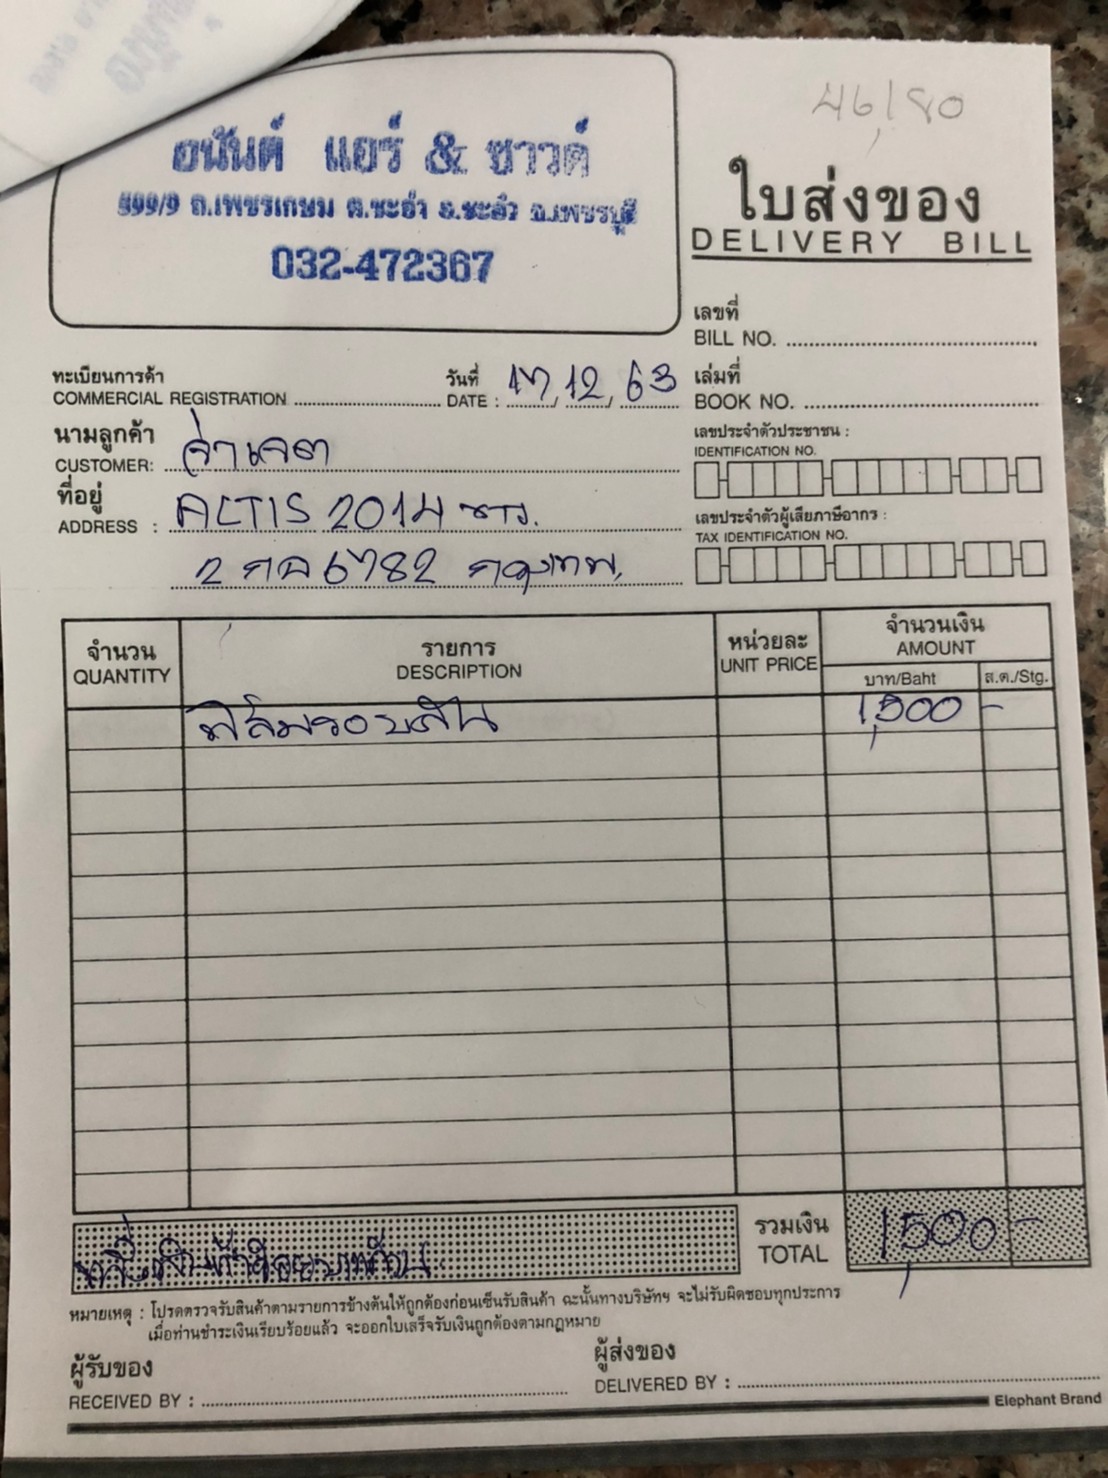 46/80
อนันต์ แอร์ & ซาวด์
599/9 ถ.เพชรเกษม ต.ชะอำ อ.ชะอำ จ.เพชรบุรี
032-472367
ใบส่งของ
DELIVERY BILL
เลขที่
BILL NO.
ทะเบียนการค้า
COMMERCIAL REGISTRATION
วันที่
DATE : 17, 12, 63
เล่มที่
BOOK NO.
นามลูกค้า
CUSTOMER: จ่าเจต
เลขประจำตัวประชาชน :
IDENTIFICATION NO.
ที่อยู่
ADDRESS : ALTIS 2014
เลขประจำตัวผู้เสียภาษีอากร :
TAX IDENTIFICATION NO.
2 กอ 6782 กรุงเทพ.
จำนวน
QUANTITY
รายการ
DESCRIPTION
หน่วยละ
UNIT PRICE
จำนวนเงิน
AMOUNT
บาท/Baht
ส.ต./Stg.
ฟิล์มรอบคัน 1,500 -
รวมเงิน
TOTAL
1,500 -
หมายเหตุ : โปรดตรวจรับสินค้าตามรายการข้างต้นให้ถูกต้องก่อนเซ็นรับสินค้า ฉะนั้นทางบริษัทฯ จะไม่รับผิดชอบทุกประการ
เมื่อท่านชำระเงินเรียบร้อยแล้ว จะออกใบเสร็จรับเงินถูกต้องตามกฎหมาย
ผู้รับของ
RECEIVED BY :
ผู้ส่งของ
DELIVERED BY :
Elephant Brand